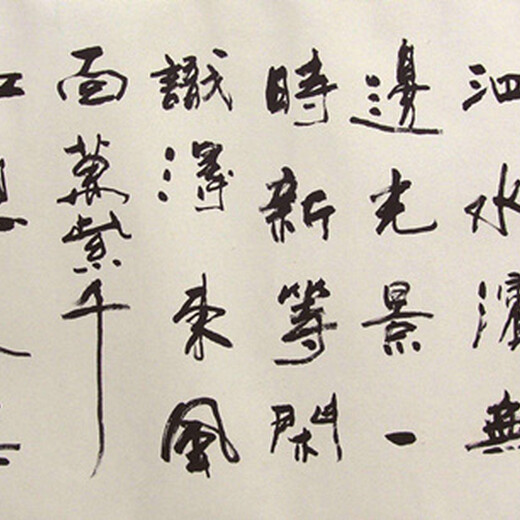 泗水濱無
邊光景一
時新等閑
識得東風
面萬紫千